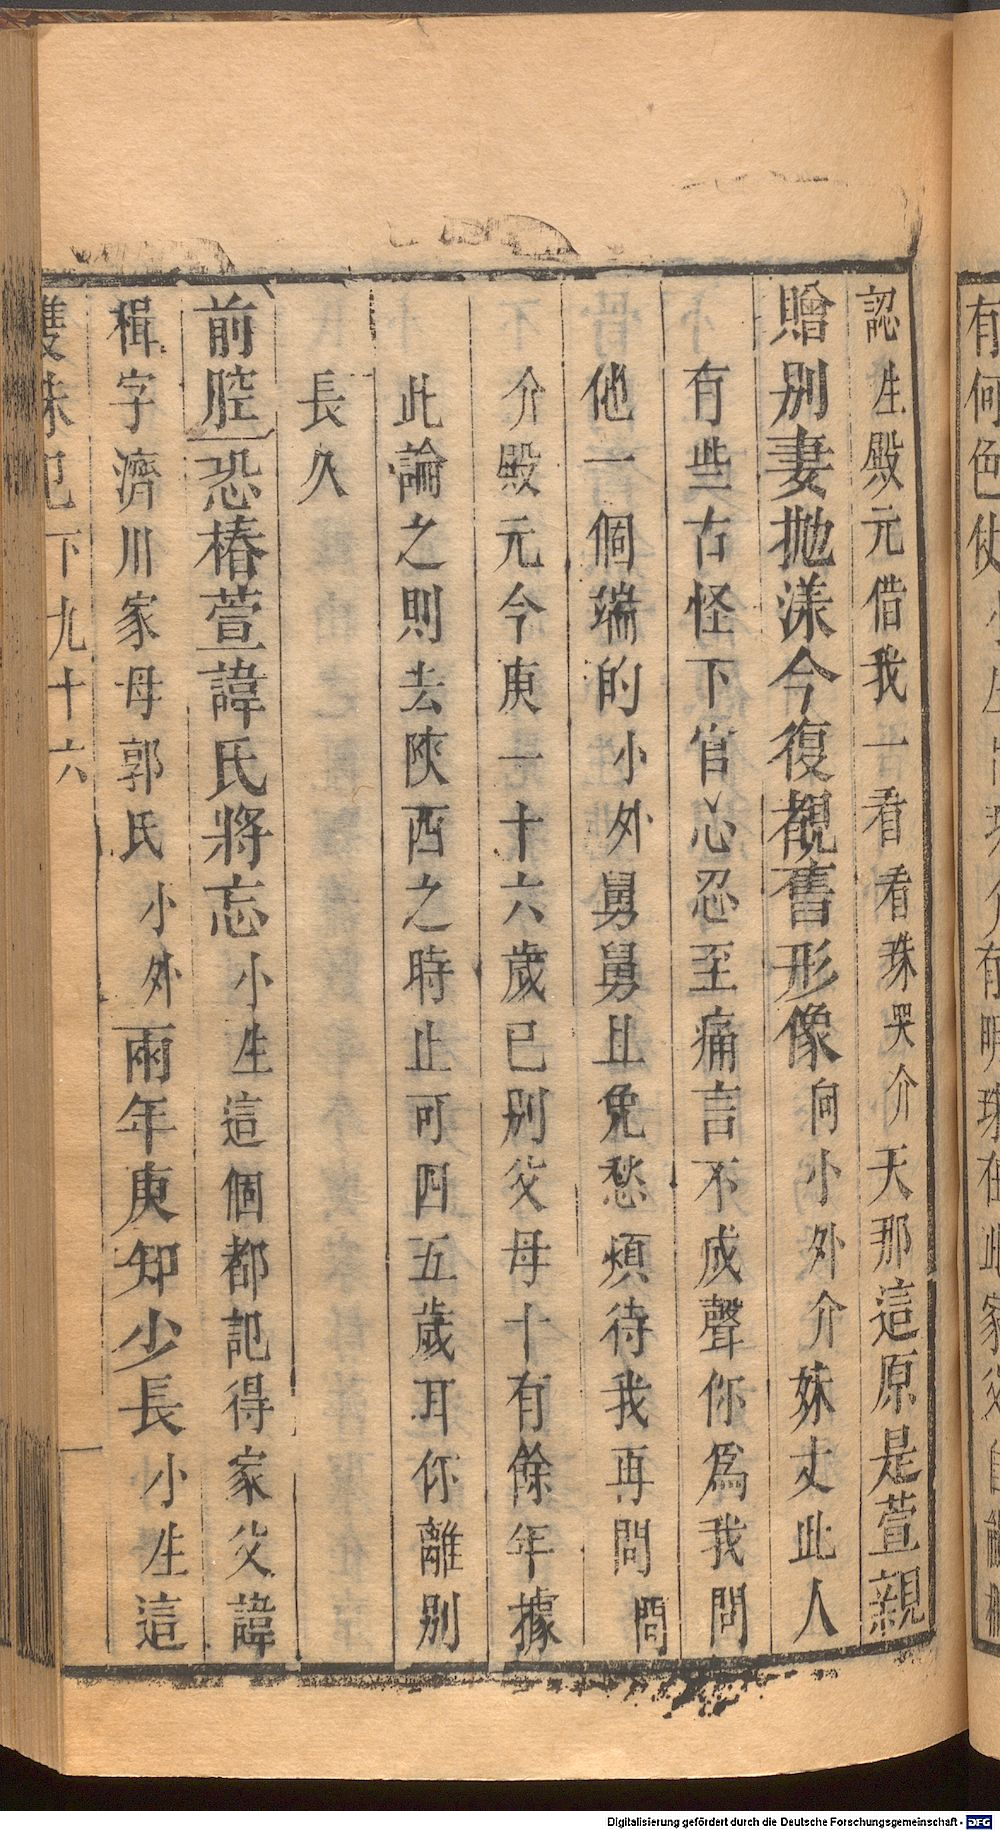 認生殿元借我一看看珠哭介天那這原是萱親
贈别妻拋漾今復覩舊形像向小外介妹丈此人
有些古怪下官心忍至痛言不成聲你爲我問
他一個端的小外舅舅且免愁煩待我再問問
介殿元今庚一十六歲已别父母十有餘年據
此論之則去陝西之時止可四五歲耳你離别
長久
前腔恐椿萱諱氏將忘小生這個都記得家父諱
楫字濟川家母郭氏小外兩年庚知少長小生這
雙珠記下九十六
有何色
有明珠在此家父自
Digitalisierung gefördert durch die Deutsche Forschungsgemeinschaft - DFG